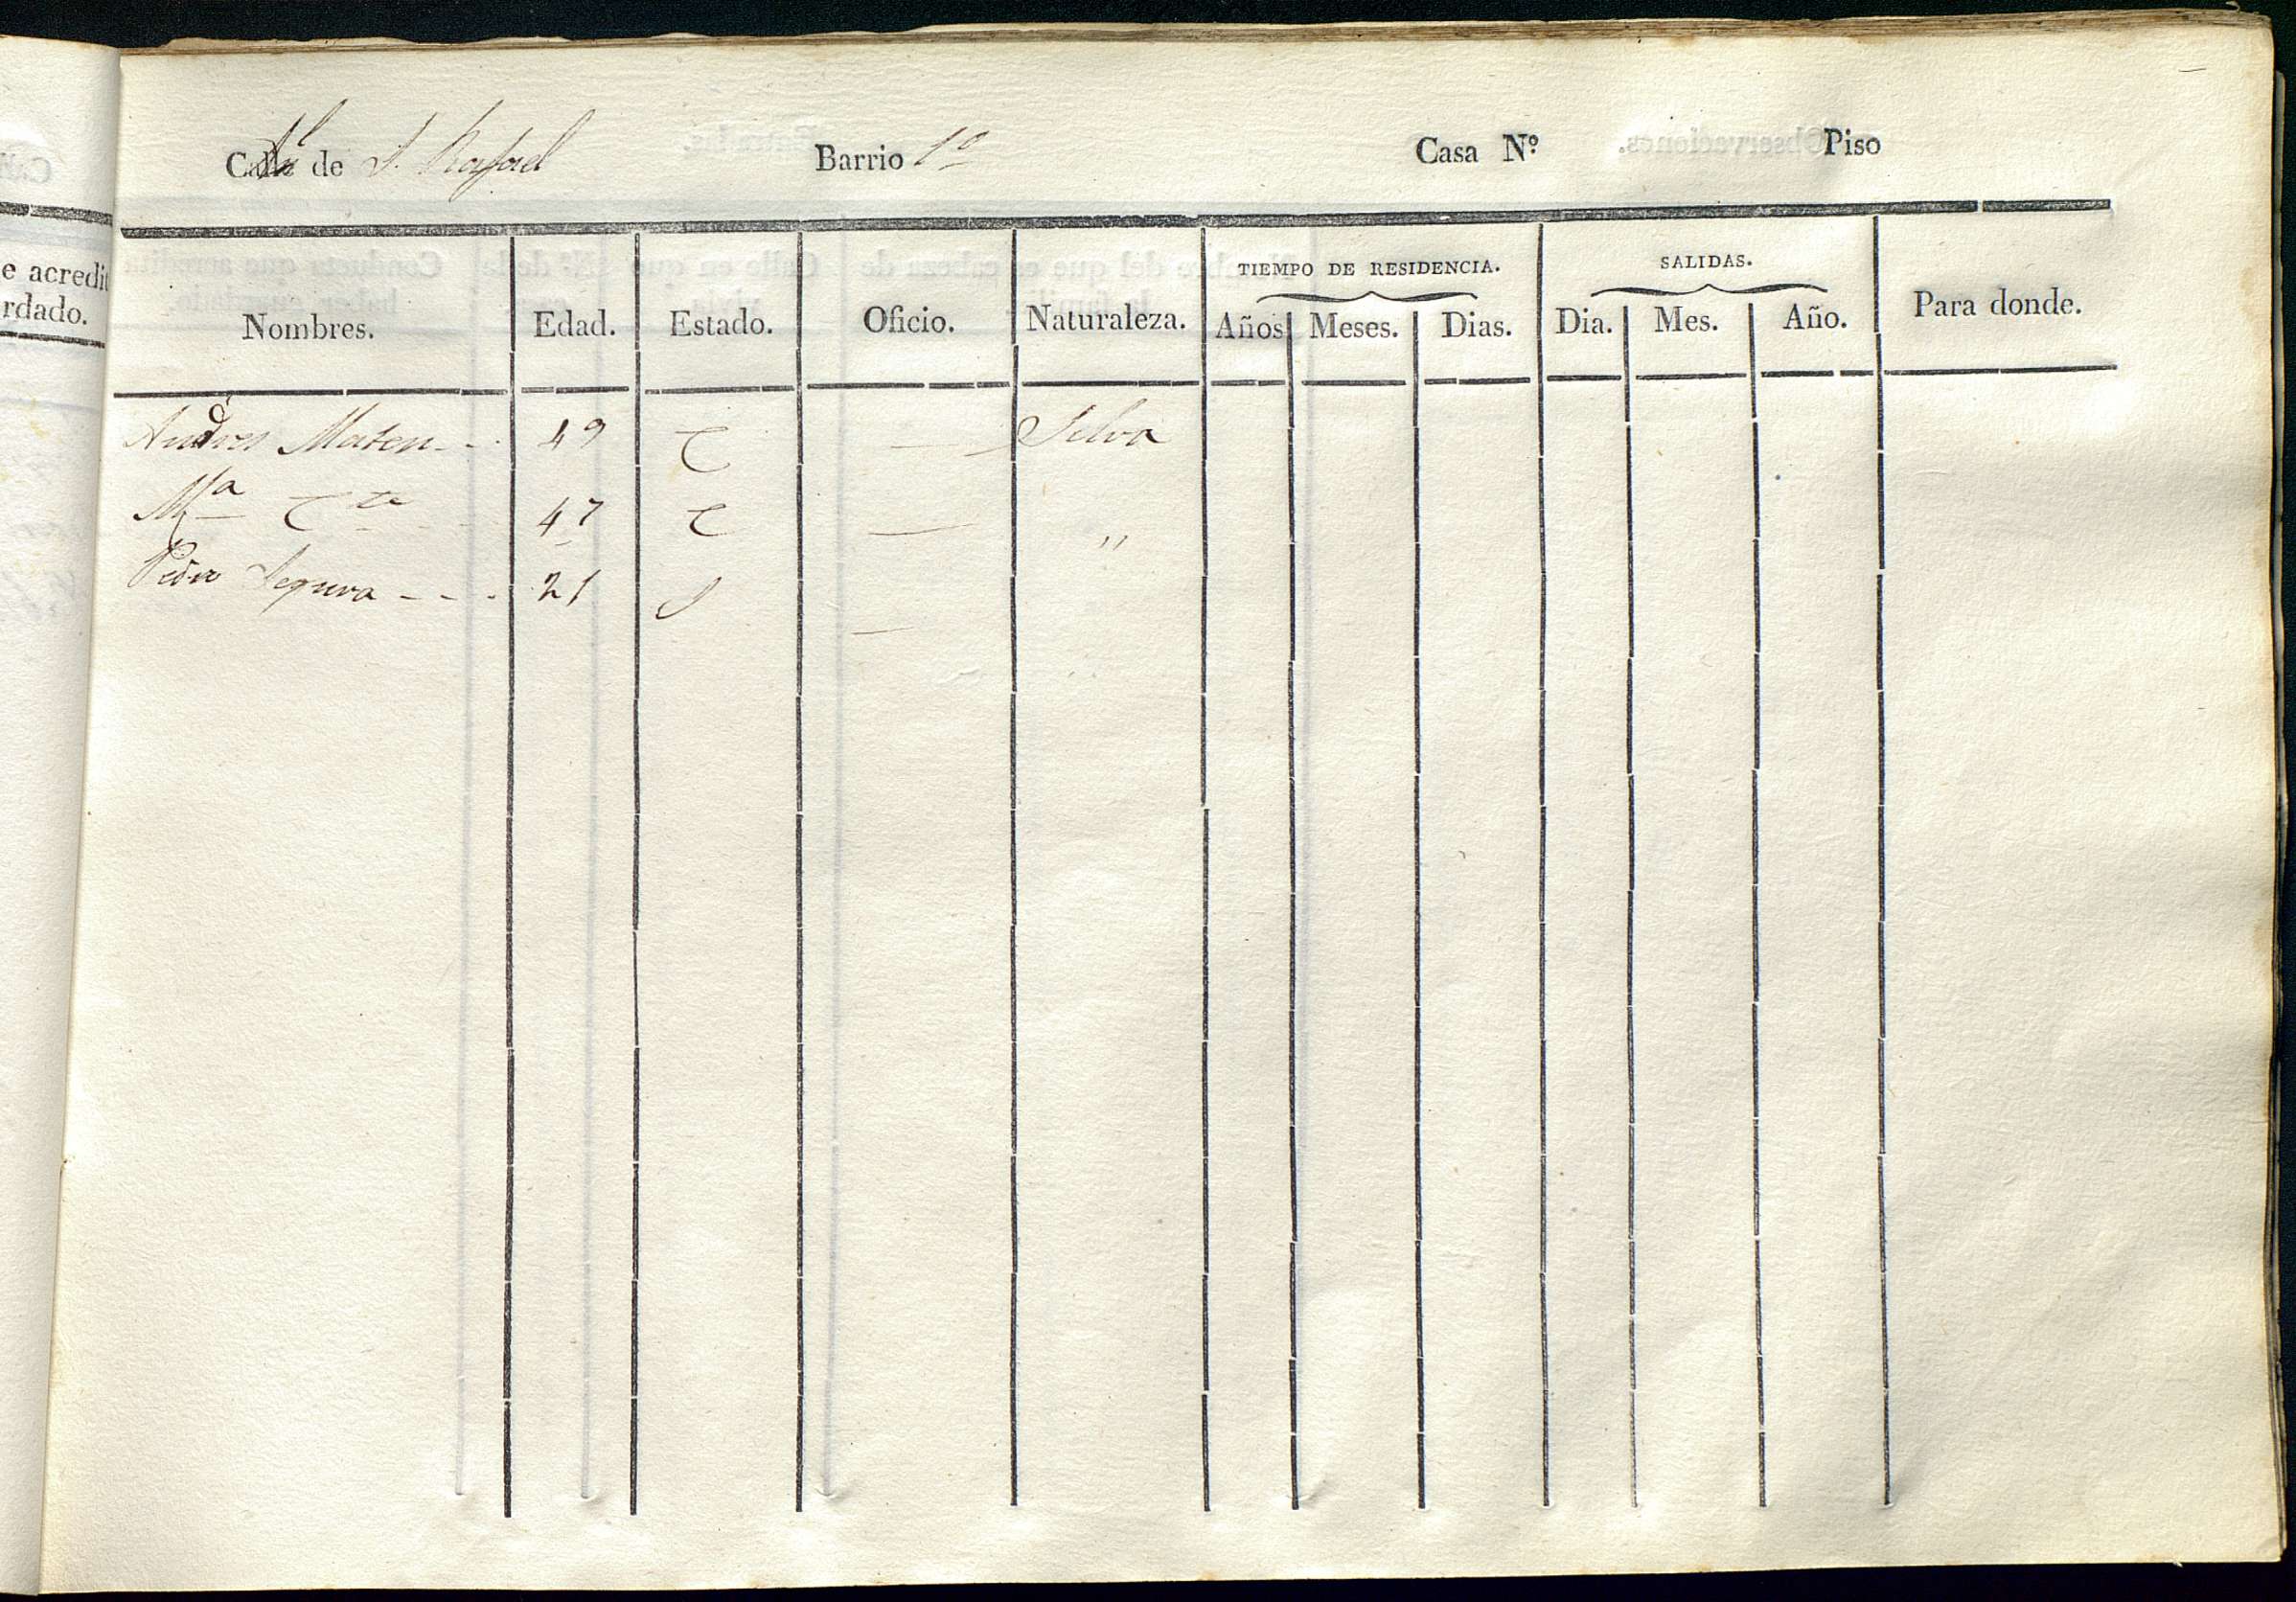 Calle de S. Rafael Barrio 1º Casa Nº Piso
e acredit
rdado.
TIEMPO DE RESIDENCIA. SALIDAS.
Nombres. Edad. Estado. Oficio. Naturaleza. Años Meses. Dias. Dia. Mes. Año. Para donde.
Andres Maten - - 49 C — Selva
Mª C 47 C — "
Pedro Segura - - - 21 S —